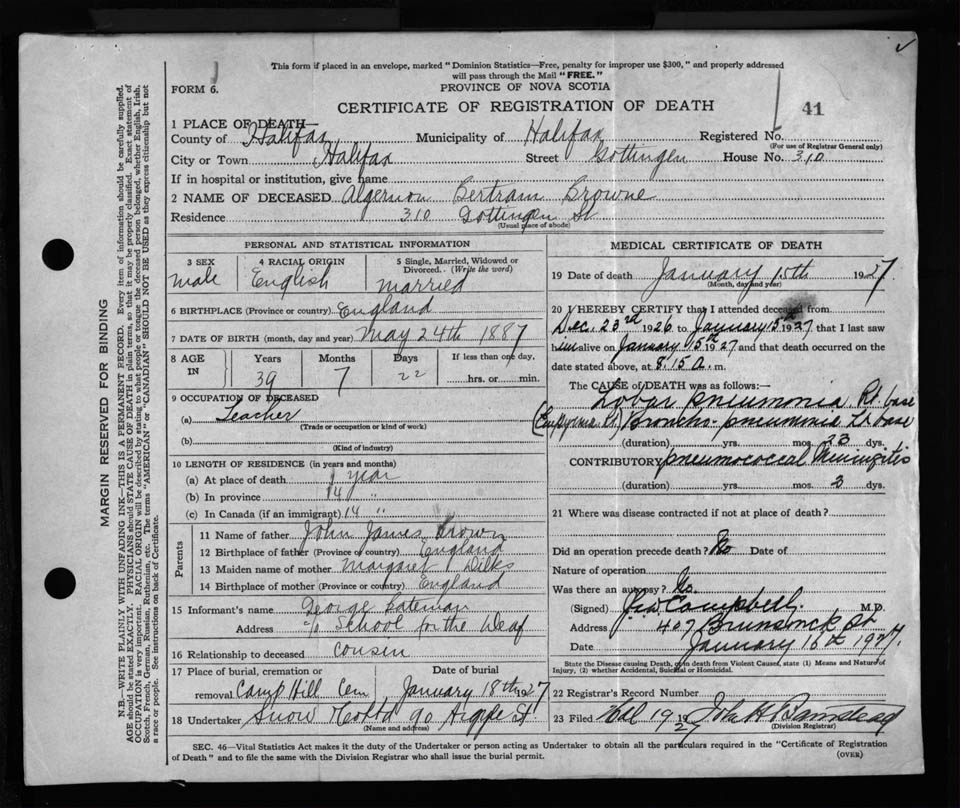 This form if placed in an envelope, marked "Dominion Statistics—Free, penalty for improper use $300," and properly addressed
will pass through the Mail "FREE."
FORM 6.
PROVINCE OF NOVA SCOTIA
CERTIFICATE OF REGISTRATION OF DEATH
41
1 PLACE OF DEATH—
County of Halifax Municipality of Halifax Registered No.
(For use of Registrar General only)
City or Town Halifax Street Gottingen House No. 310
If in hospital or institution, give name
2 NAME OF DECEASED Algernon Bertram Browne
Residence 310 Gottingen St
(Usual place of abode)
PERSONAL AND STATISTICAL INFORMATION
3 SEX 4 RACIAL ORIGIN 5 Single, Married, Widowed or
Divorced. (Write the word)
male English married
6 BIRTHPLACE (Province or country) England
7 DATE OF BIRTH (month, day and year) May 24th 1887
8 AGE IN Years Months Days If less than one day,
39 7 22 hrs. or min.
9 OCCUPATION OF DECEASED
(a) Teacher
(Trade or occupation or kind of work)
(b)
(Kind of industry)
10 LENGTH OF RESIDENCE (in years and months)
(a) At place of death 1 year
(b) In province 14 "
(c) In Canada (if an immigrant) 14 "
Parents
11 Name of father John James Brown
12 Birthplace of father (Province or country) England
13 Maiden name of mother Margaret Dilks
14 Birthplace of mother (Province or country) England
15 Informant's name George Bateman
Address c/o School for the Deaf
16 Relationship to deceased cousin
17 Place of burial, cremation or Date of burial
removal Camp Hill Cem January 18th 1927
18 Undertaker Snow 90 Argyle St.
(Name and address)
MEDICAL CERTIFICATE OF DEATH
19 Date of death January 15th 1927
(Month, day and year)
20 I HEREBY CERTIFY that I attended deceased from
Dec. 23rd 1926 to January 15th 1927 that I last saw
him alive on January 15th 1927 and that death occurred on the
date stated above, at 8.15 a. m.
The CAUSE of DEATH was as follows:—
Lobar pneumonia Rt. base
(Empyema Rt.) Broncho-pneumonia Lt base
(duration) yrs. mos. 23 dys.
CONTRIBUTORY pneumococcal Meningitis
(duration) yrs. mos. 3 dys.
21 Where was disease contracted if not at place of death?
Did an operation precede death? No Date of
Nature of operation
Was there an autopsy? No.
(Signed) Campbell. M.D.
Address 407 Brunswick St
Date January 16th 1927.
State the Disease causing Death, or in death from Violent Causes, state (1) Means and Nature of
Injury, (2) whether Accidental, Suicidal or Homicidal.
22 Registrar's Record Number
23 Filed 19 1927 John
(Division Registrar)
SEC. 46—Vital Statistics Act makes it the duty of the Undertaker or person acting as Undertaker to obtain all the particulars required in the "Certificate of Registration
of Death" and to file the same with the Division Registrar who shall issue the burial permit.
(OVER)
MARGIN RESERVED FOR BINDING
N.B.—WRITE PLAINLY WITH UNFADING INK—THIS IS A PERMANENT RECORD. Every item of information should be carefully supplied.
AGE should be stated EXACTLY. PHYSICIANS should STATE CAUSE OF DEATH in plain terms, so that it may be properly classified. Exact statement of
OCCUPATION is very important. RACIAL ORIGIN will be described by stating to what people or tongue the deceased person belonged, whether English, Irish,
Scotch, French, German, Russian, Ruthenian, etc. The terms "AMERICAN" or "CANADIAN" SHOULD NOT BE USED as they express citizenship but not
a race or people. See instructions on back of Certificate.